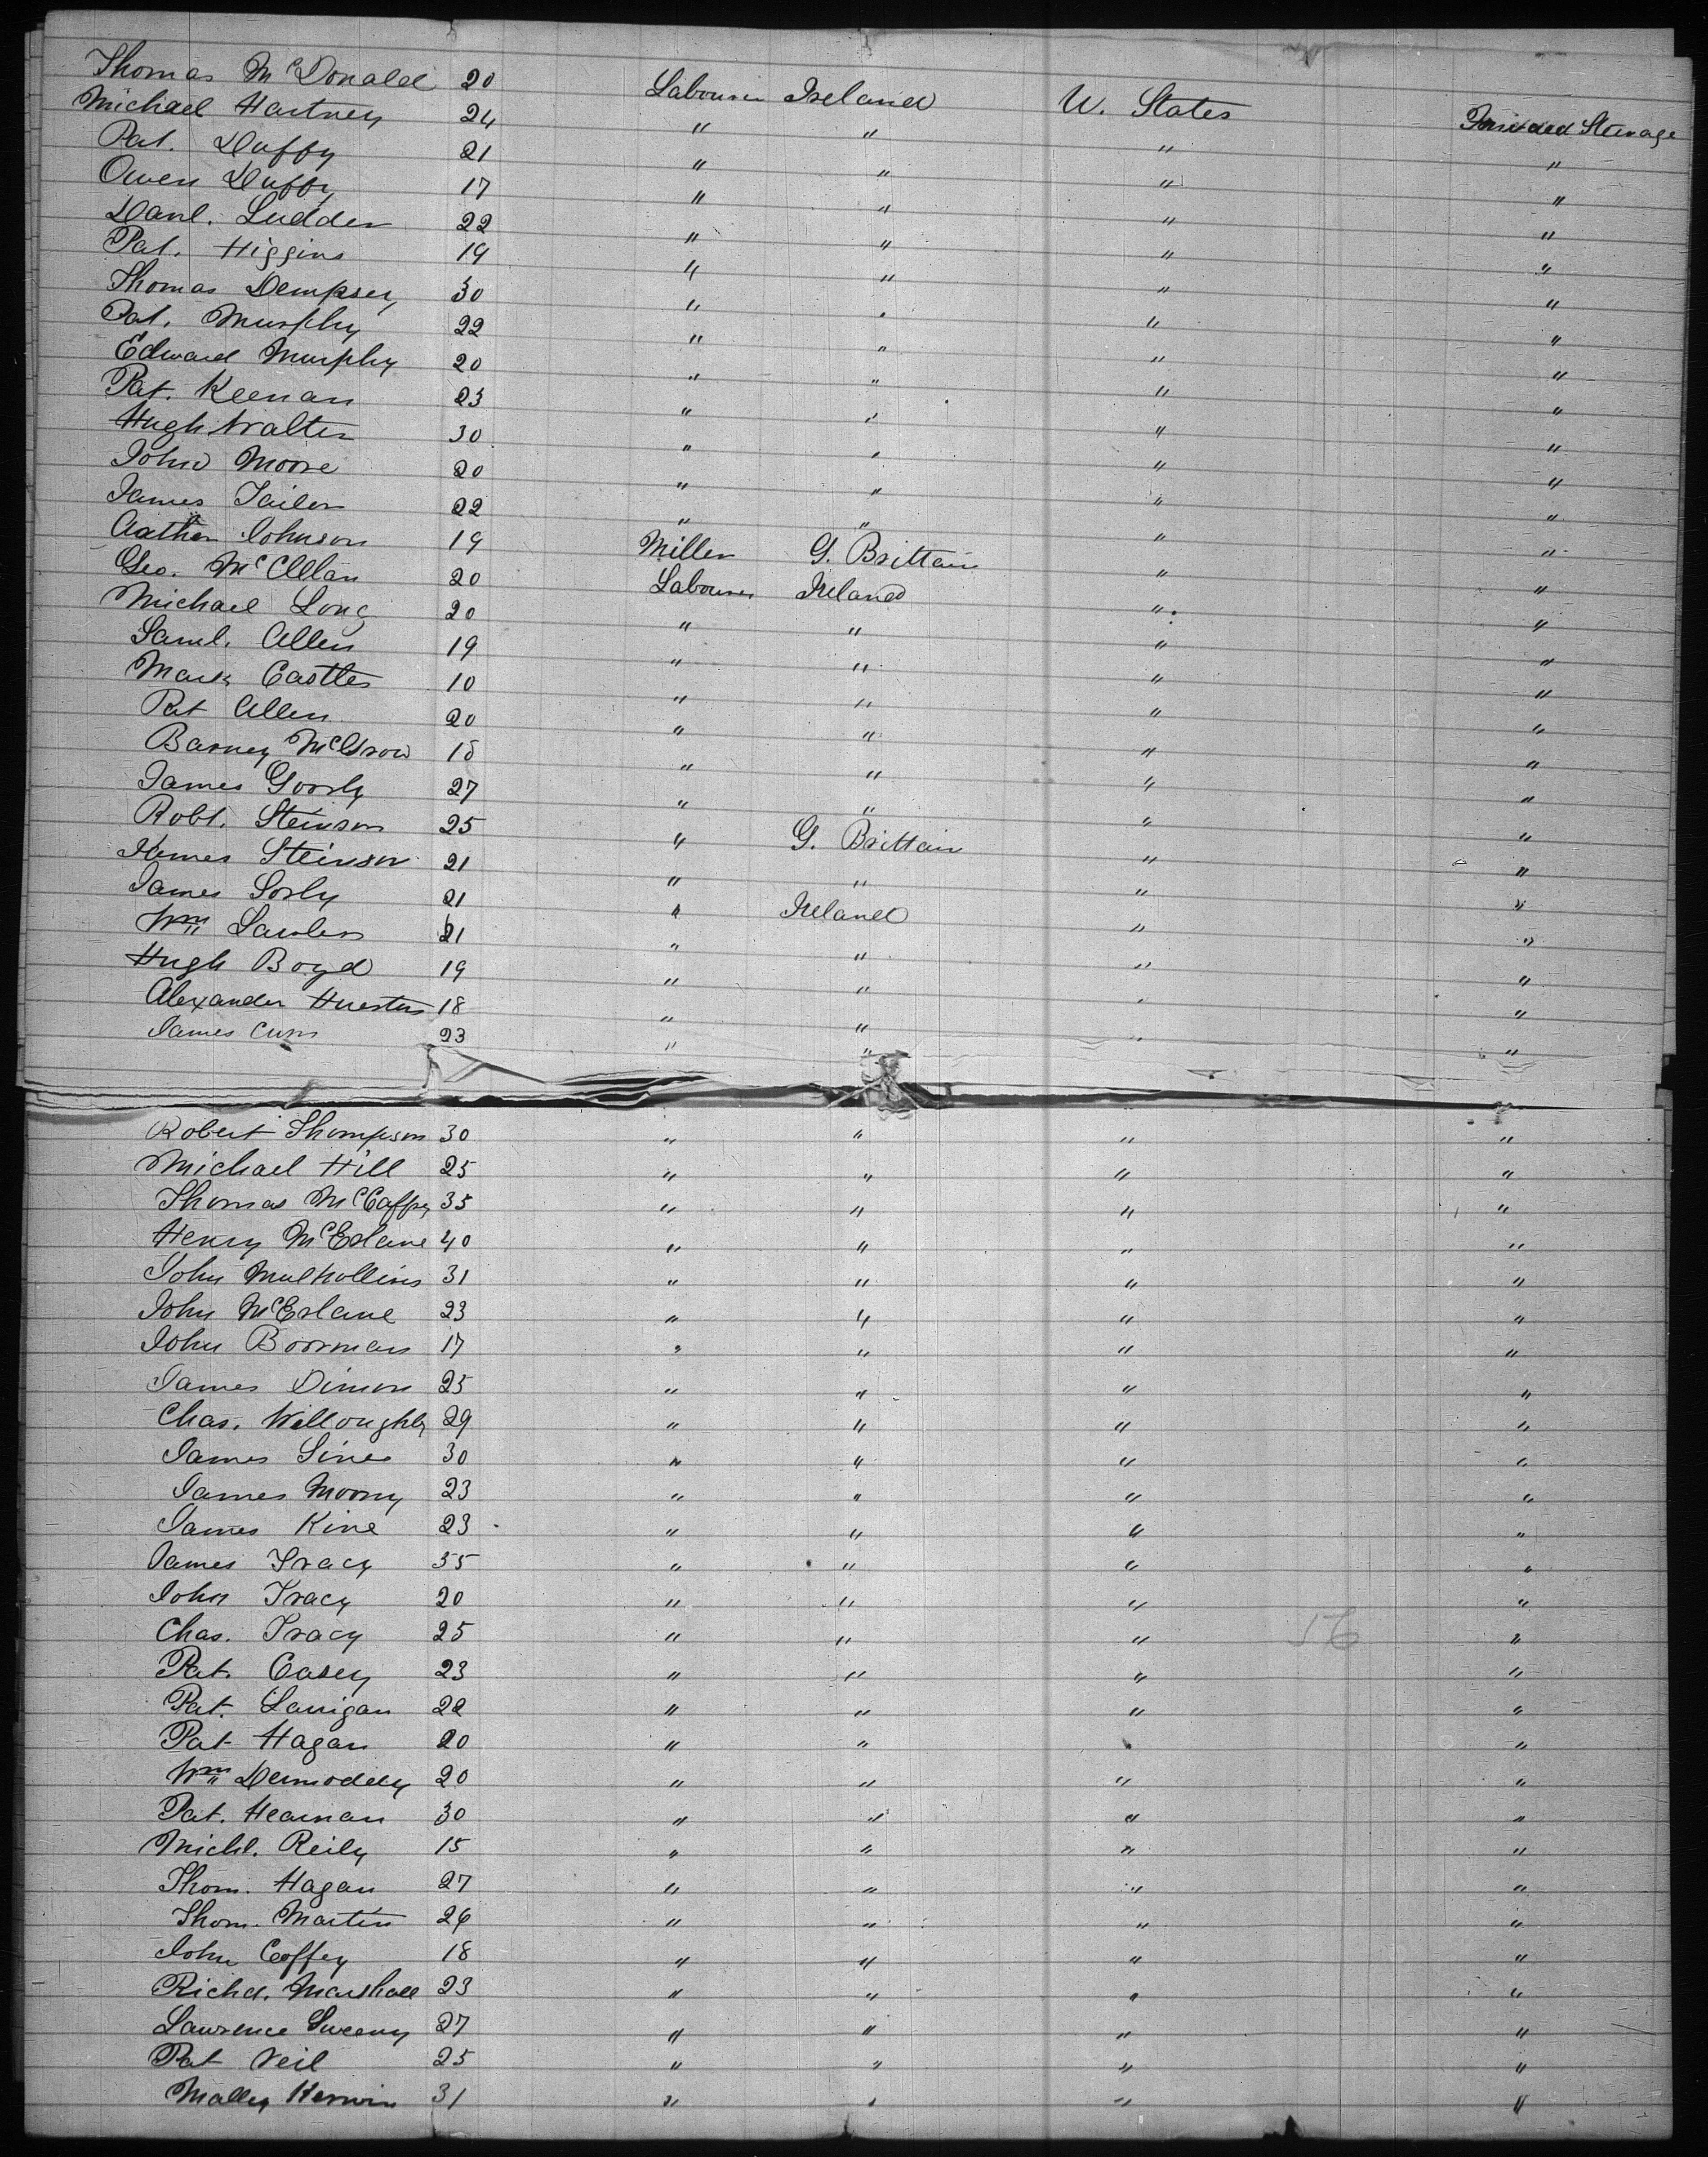 Thomas McDonald 20 Labourer Ireland U. States Steerage
Michael Hartney 24 " " " "
Pat. Duffy 21 " " " "
Owen Duffy 17 " " " "
Danl. Ludden 22 " " " "
Pat. Higgins 19 " " " "
Thomas Dempsey 30 " " " "
Pat. Murphy 22 " " " "
Edward Murphy 20 " " " "
Pat. Keenan 23 " " " "
Hugh Walter 30 " " " "
John Moore 20 " " " "
James Tailor 22 " " " "
Johnson 19 Miller G. Brittain " "
Geo. McClelan 20 Labourer Ireland " "
Michael Long 20 " " " "
Saml. Allen 19 " " " "
Mark Castles 10 " " " "
Pat Allen 20 " " " "
Barney McGrow 18 " " " "
James Goorly 27 " " " "
Robt. Steinson 25 " G. Brittain " "
James Steinson 21 " " " "
James Sorly 21 " Ireland " "
Wm Lawler 21 " " " "
Hugh Boyd 19 " " " "
Alexander 18 " " " "
James 23 " " " "
Robert Thompson 30 " " " "
Michael Hill 25 " " " "
Thomas McCaffry 35 " " " "
Henry McErlane 40 " " " "
John Mulhollins 31 " " " "
John McErlane 23 " " " "
John Boorman 17 " " " "
James Dimon 25 " " " "
Chas. Willoughby 29 " " " "
James Sines 30 " " " "
James Moony 23 " " " "
James Kine 23 " " " "
James Tracy 35 " " " "
John Tracy 20 " " " "
Chas. Tracy 25 " " " "
Pat. Casey 23 " " " "
Pat. Lanigan 22 " " " "
Pat Hagan 20 " " " "
Wm Dermoddy 20 " " " "
Pat. Hearnan 30 " " " "
Michl. Reily 15 " " " "
Thom. Hagan 27 " " " "
Thom. Martin 26 " " " "
John Coffey 18 " " " "
Richd. Marshall 23 " " " "
Lawrence Sweeny 27 " " " "
Pat Neil 25 " " " "
Malley Kerwin 31 " " " "